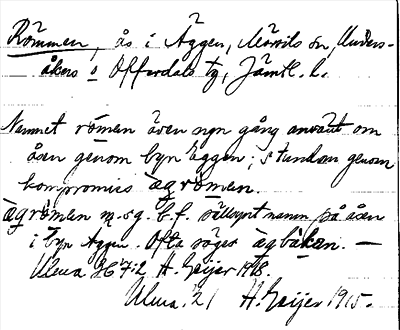 Römmen, ås i Äggen, Mörsils sn, Unders-
åkers o Offerdals tg, Jämtl. l.
Namnet römen även ngn gång använt om
åsen genom byn Äggen; stundom genom
kompromiss ägrömen.
ägrömen m. sg. b. f. sällsynt namn på åsen
i byn Äggen. Ofta säges ägbåken. —
Ulma 267:2 H. Geijer 1918.
Ulma. 21 H. Geijer 1915.